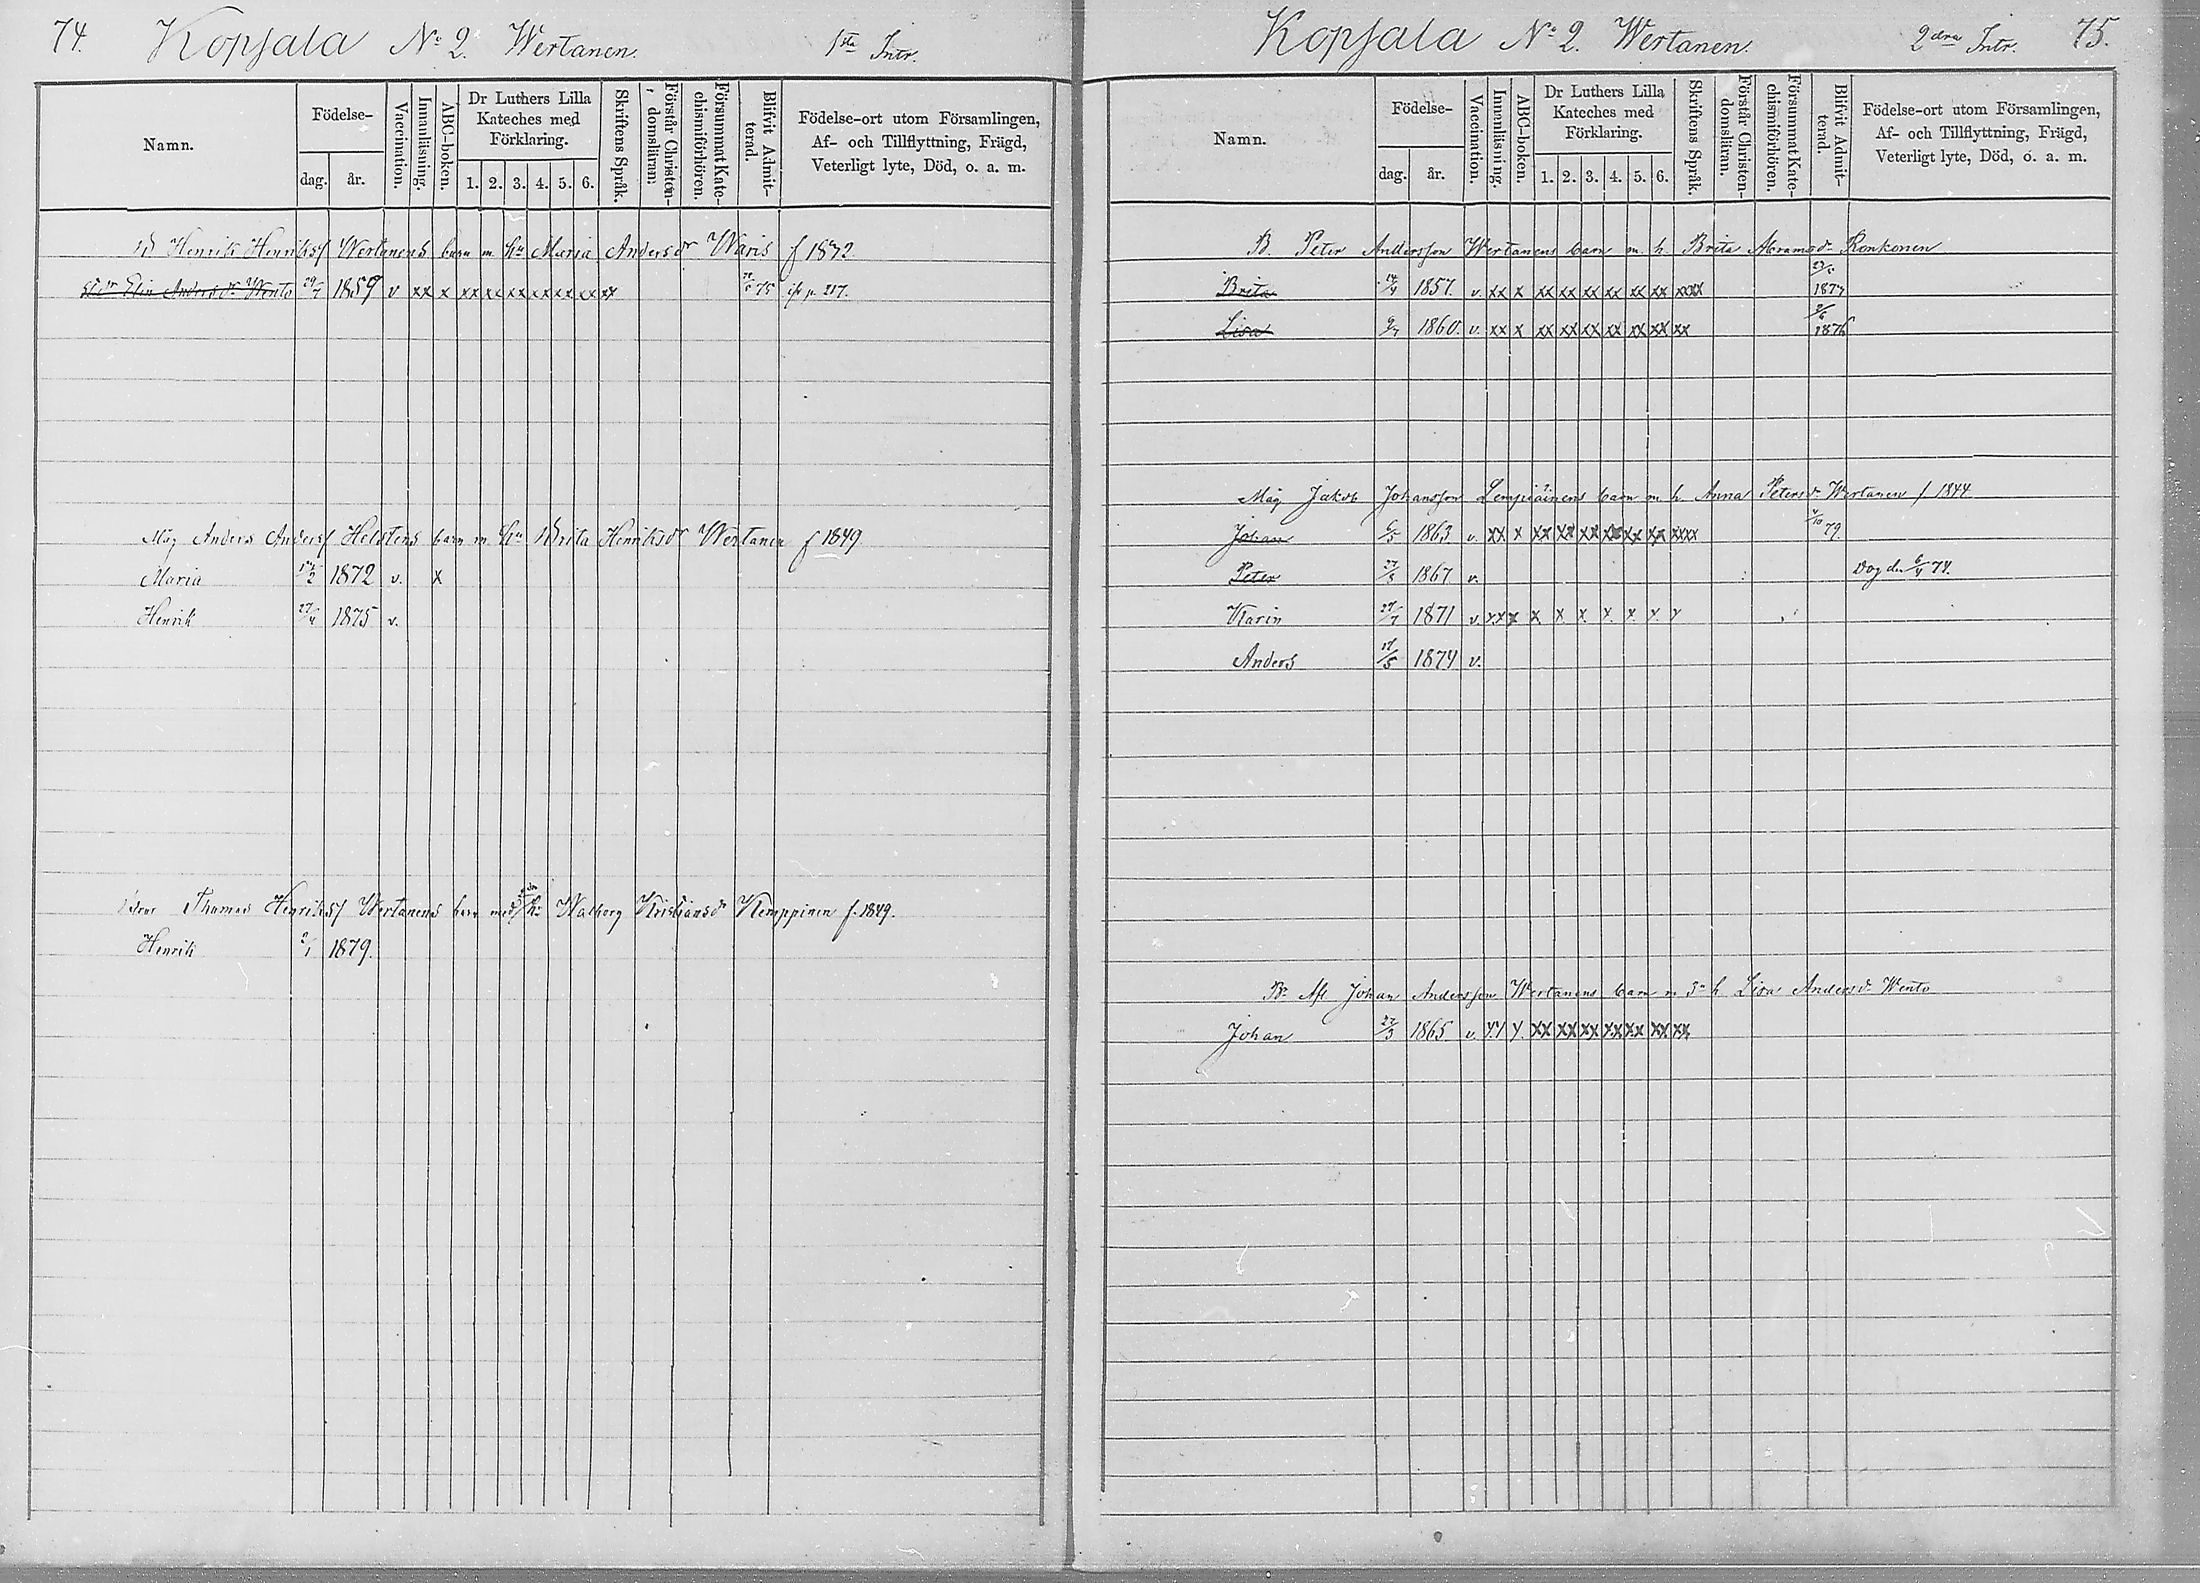 74. Kopsala No 2. Wertanen. 1sta Intr.
Namn. Födelse- dag. år. Vaccination. Innanläsning. ABC-boken. Dr Luthers Lilla Kateches med Förklaring. 1. 2. 3. 4. 5. 6. Skriftens Språk. Förstår Christendomsläran. Försummat Katechismiförhören. Blifvit Admitterad. Födelse-ort utom Församlingen, Af- och Tillflyttning, Frägd, Veterligt lyte, Död, o. a. m.
Henrik Henrikss Wertanens barn m hu Maria Andersdr Waris f 1872
Elin Andersdr Wento 29/7 1859 v xx x xx xx xx xx xx xx xx 75 p. 217.
Måg Anders Anderss Helstens barn m hu Brita Henriksdr Wertanen f 1849
Maria 1872 v. x
Henrik 27/4 1875 v.
Thomas Henrikss Wertanens barn med hu Walborg Kristiansdr Kemppinen f. 1849.
Henrik 2/1 1879.
Kopsala No 2. Wertanen. 2dra Intr. 75.
Namn. Födelse- dag. år. Vaccination. Innenläsning. ABC-boken. Dr Luthers Lilla Kateches med Förklaring. 1. 2. 3. 4. 5. 6. Skriftens Språk. Förstår Christendomsläran. Försummat Katechismiförhören. Blifvit Admitterad. Födelse-ort utom Församlingen, Af- och Tillflyttning, Frägd, Veterligt lyte, Död, o. a. m.
B. Peter Andersson Wertanens barn m. h. Brita Abramsdr Ronkonen
Brita 14/4 1857. v. xx x xx xx xx xx xx xx xxxx 1877
Lisa 9/7 1860. v. xx x xx xx xx xx xx xx xx 1876
Måg Jakob Johansson Lempiäinens barn m. h. Anna Petersdr Wertanen f 1844
Johan 6/5 1863 v. xx x xx xx xx xx xx xx xxxx 79.
Peter 27/8 1867 v. Dog den 6/4 74.
Karin 29/7 1871 v. xx x x x x x x x x
Anders 1874 v.
Br Afl Johan Andersson Wertanens barn m 3e h Lisa Andersdr Wento
Johan 27/3 1865 v. xx x xx xx xx xx xx xx xx